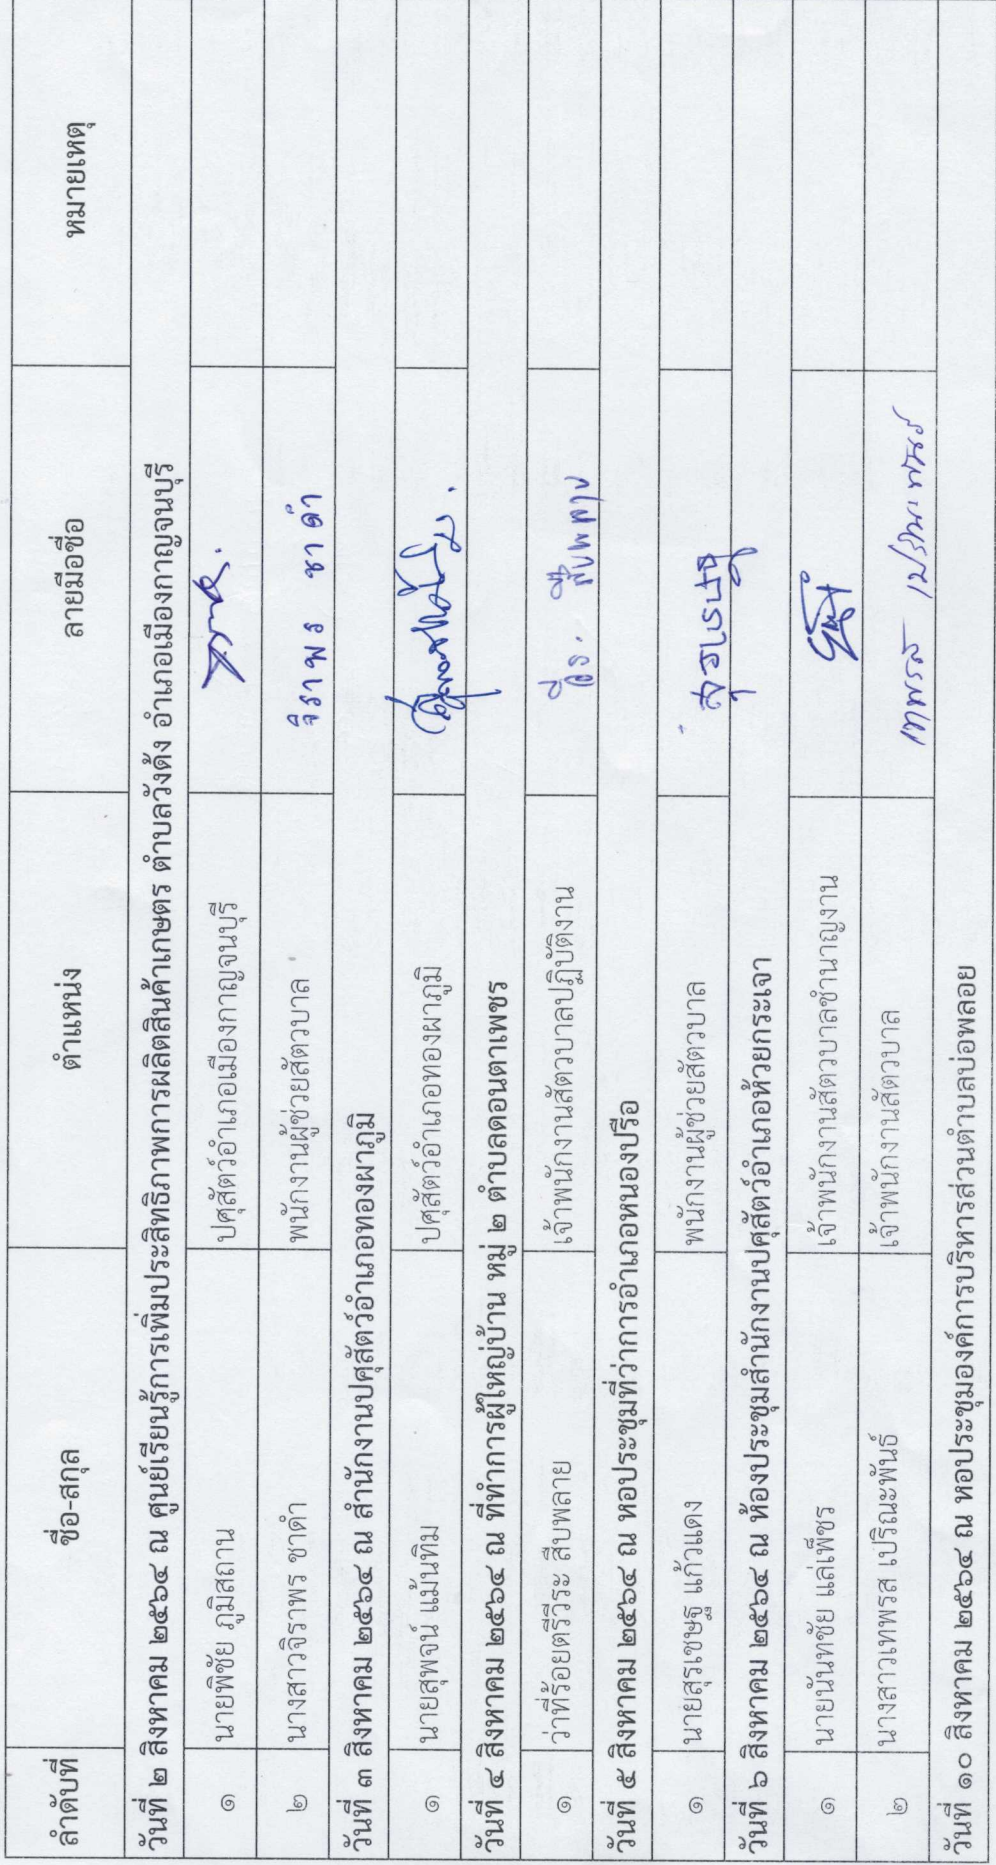 ลำดับที่ ชื่อ-สกุล ตำแหน่ง ลายมือชื่อ หมายเหตุ
วันที่ ๒ สิงหาคม ๒๕๖๔ ณ ศูนย์เรียนรู้การเพิ่มประสิทธิภาพการผลิตสินค้าเกษตร ตำบลวังด้ง อำเภอเมืองกาญจนบุรี
๑ นายพิชัย ภูมิสถาน ปศุสัตว์อำเภอเมืองกาญจนบุรี
๒ นางสาวจิราพร ชาดำ พนักงานผู้ช่วยสัตวบาล จิราพร ชาดำ
วันที่ ๓ สิงหาคม ๒๕๖๔ ณ สำนักงานปศุสัตว์อำเภอทองผาภูมิ
๑ นายสุพจน์ แม้นทิม ปศุสัตว์อำเภอทองผาภูมิ
วันที่ ๔ สิงหาคม ๒๕๖๔ ณ ที่ทำการผู้ใหญ่บ้าน หมู่ ๒ ตำบลดอนตาเพชร
๑ ว่าที่ร้อยตรีวีระ สืบพลาย เจ้าพนักงานสัตวบาลปฏิบัติงาน
วันที่ ๕ สิงหาคม ๒๕๖๔ ณ หอประชุมที่ว่าการอำเภอหนองปรือ
๑ นายสุรเชษฐ แก้วแดง พนักงานผู้ช่วยสัตวบาล
วันที่ ๖ สิงหาคม ๒๕๖๔ ณ ห้องประชุมสำนักงานปศุสัตว์อำเภอห้วยกระเจา
๑ นายนันทชัย แล่เพ็ชร เจ้าพนักงานสัตวบาลชำนาญงาน
๒ นางสาวเทพรส เปริณะพันธ์ เจ้าพนักงานสัตวบาล เทพรส
วันที่ ๑๐ สิงหาคม ๒๕๖๔ ณ หอประชุมองค์การบริหารส่วนตำบลบ่อพลอย